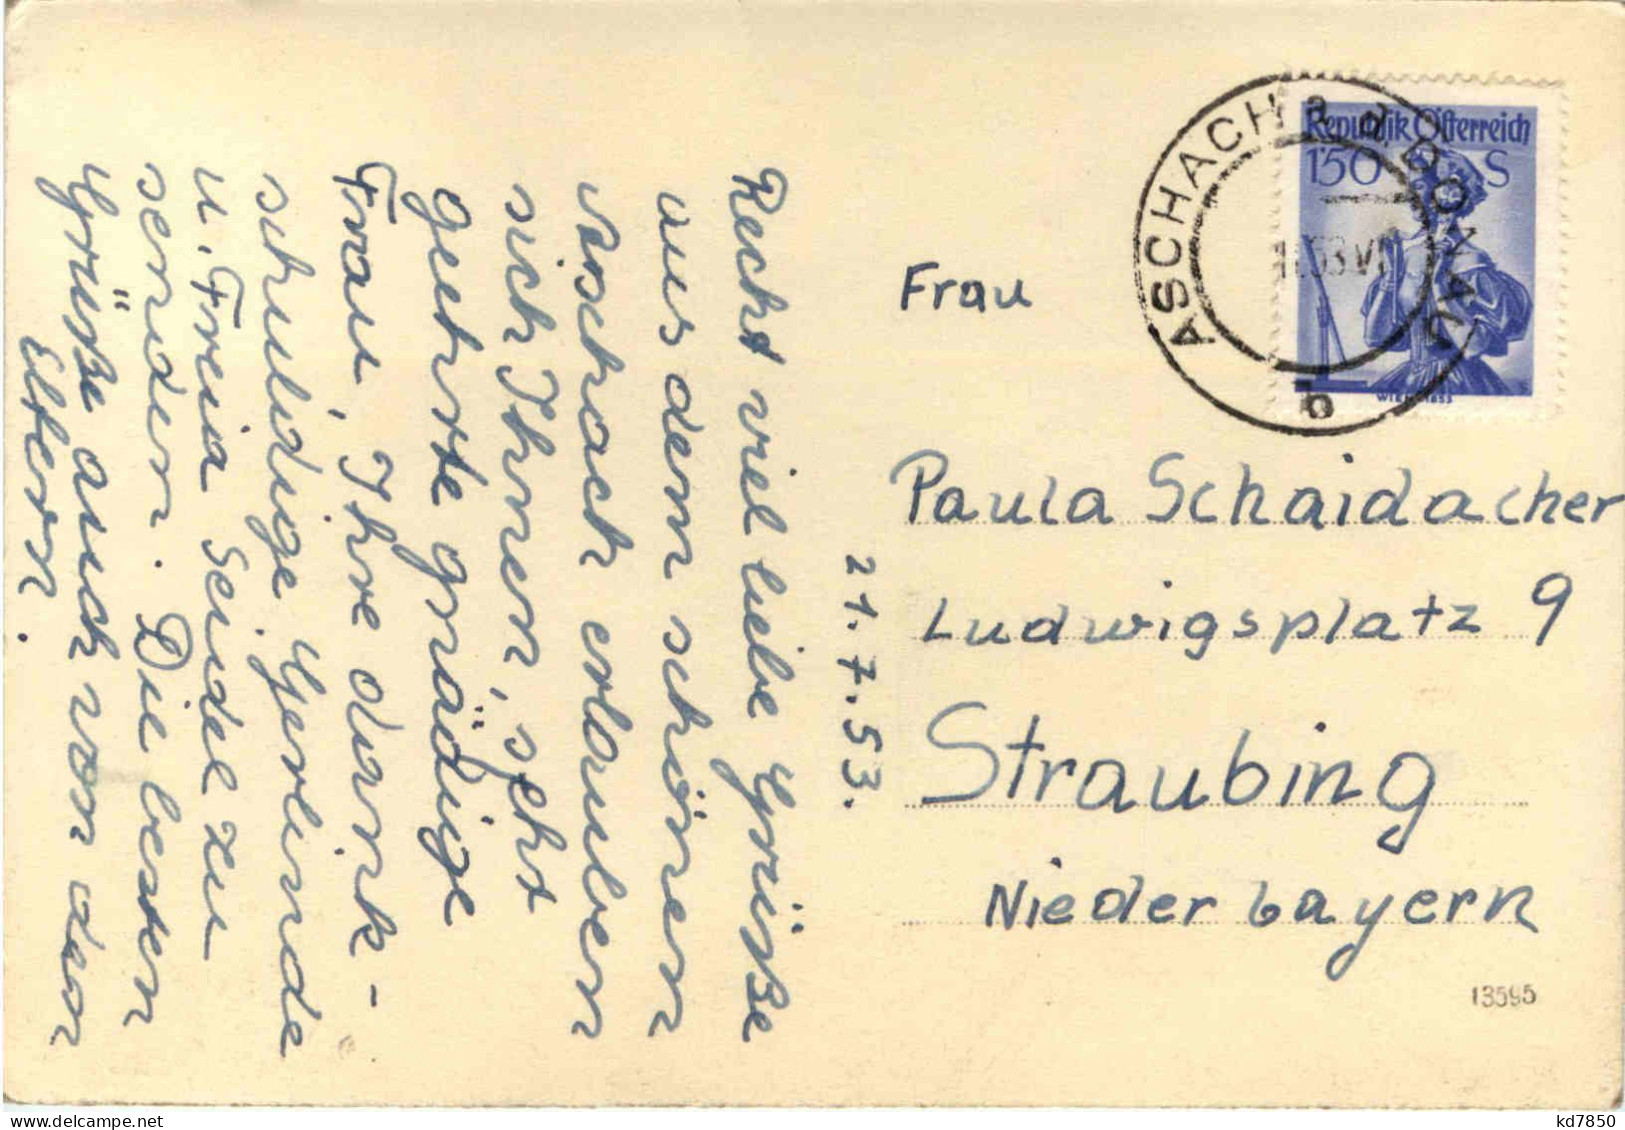 Recht viel liebe Grüße
aus dem schönen
Aschach erlauben
sich Ihnen, sehr
geehrte gnädige
Frau, Ihre dank-
schuldige Gerlinde
u. Freia Seidel zu
senden. Die besten
Grüße auch von den
Eltern.
21.7.53.
Frau
Paula Schaidacher
Ludwigsplatz 9
Straubing
Niederbayern
13595
Republik Österreich
1'50 S
WIEN 1853
ASCHACH a. d. DONAU
b
kd7850